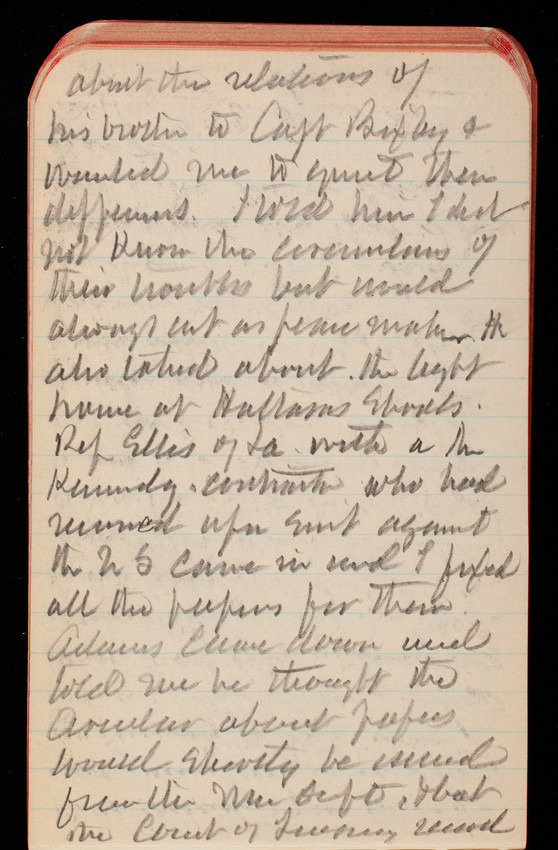 about the relations of
his brother to Capt Bixby &
wanted me to quiet their
differences. I told him I did
not know the circumstances of
their troubles but would
always act as peace maker. He
also talked about the light
house at Hatteras Shoals.
Rep Ellis of La. with a Mr
Kennedy contractor who had
recovered upon suit against
the US came in and I fixed
all the papers for them.
Adams came down and
told me he thought the
Circular about papers
would shortly be issued
from the War Dept, & that
the Court of Inquiry record